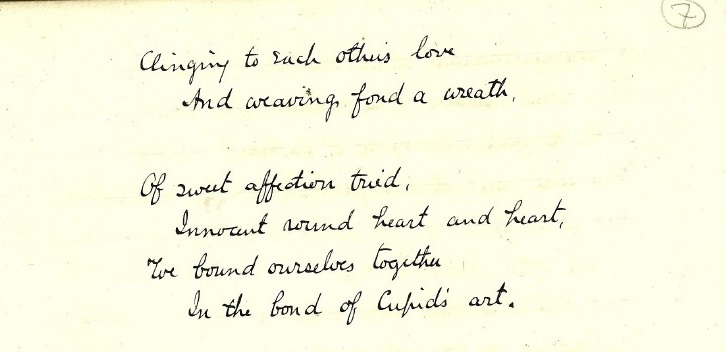 7
Clinging to each other's love
And weaving, fond a wreath,
Of sweet affection tried,
Innocent round heart and heart,
We bound ourselves together
In the bond of Cupid's art.